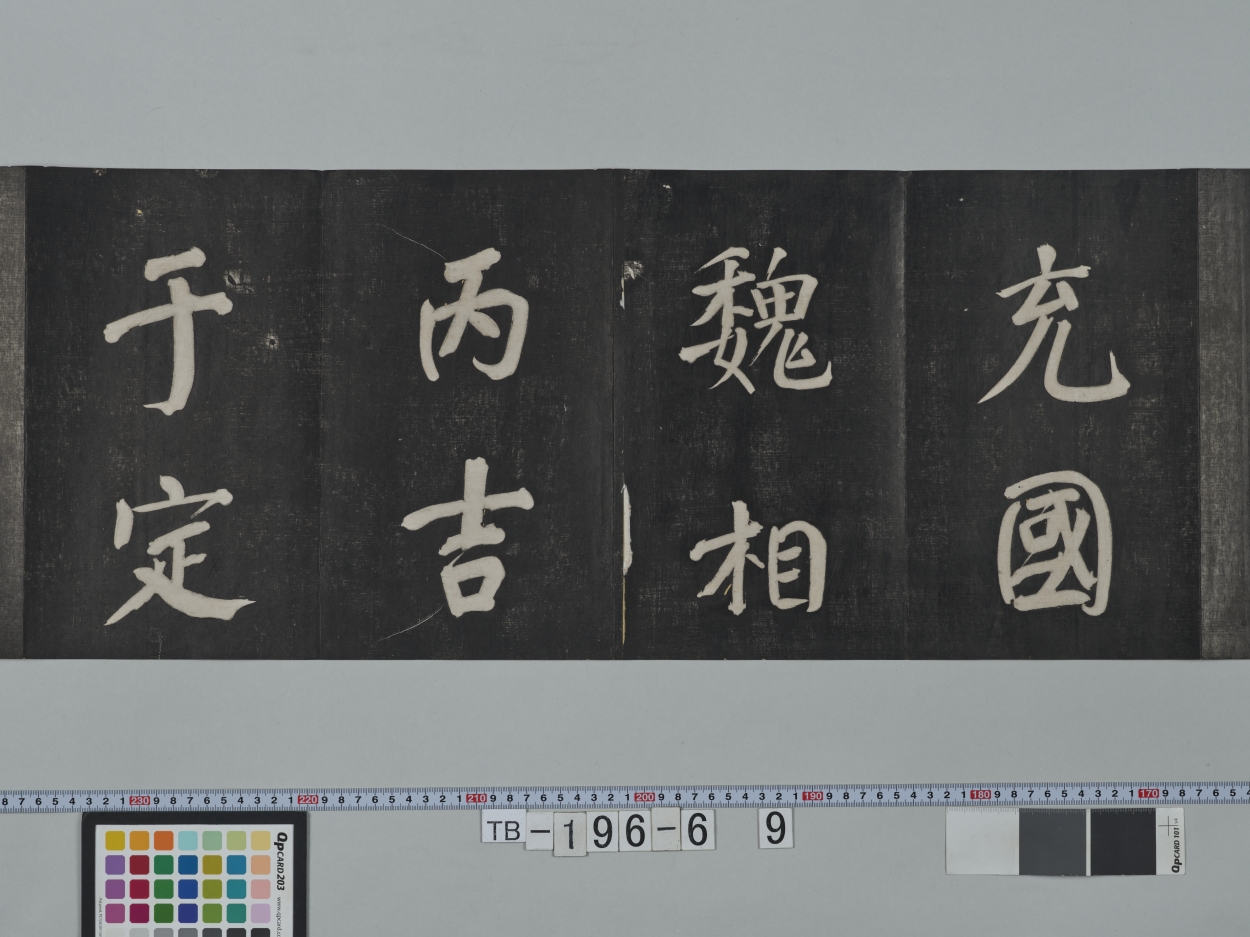 充國
魏相
丙吉
于定
8 7 6 5 4 3 2 1 230 9 8 7 6 5 4 3 2 1 220 9 8 7 6 5 4 3 2 1 210 9 8 7 6 5 4 3 2 1 200 9 8 7 6 5 4 3 2 1 190 9 8 7 6 5 4 3 2 1 180 9 8 7 6 5 4 3 2 1 170 9 8 7 6 5 4
TB-196-6 9
QPCARD 101
QPCARD 203